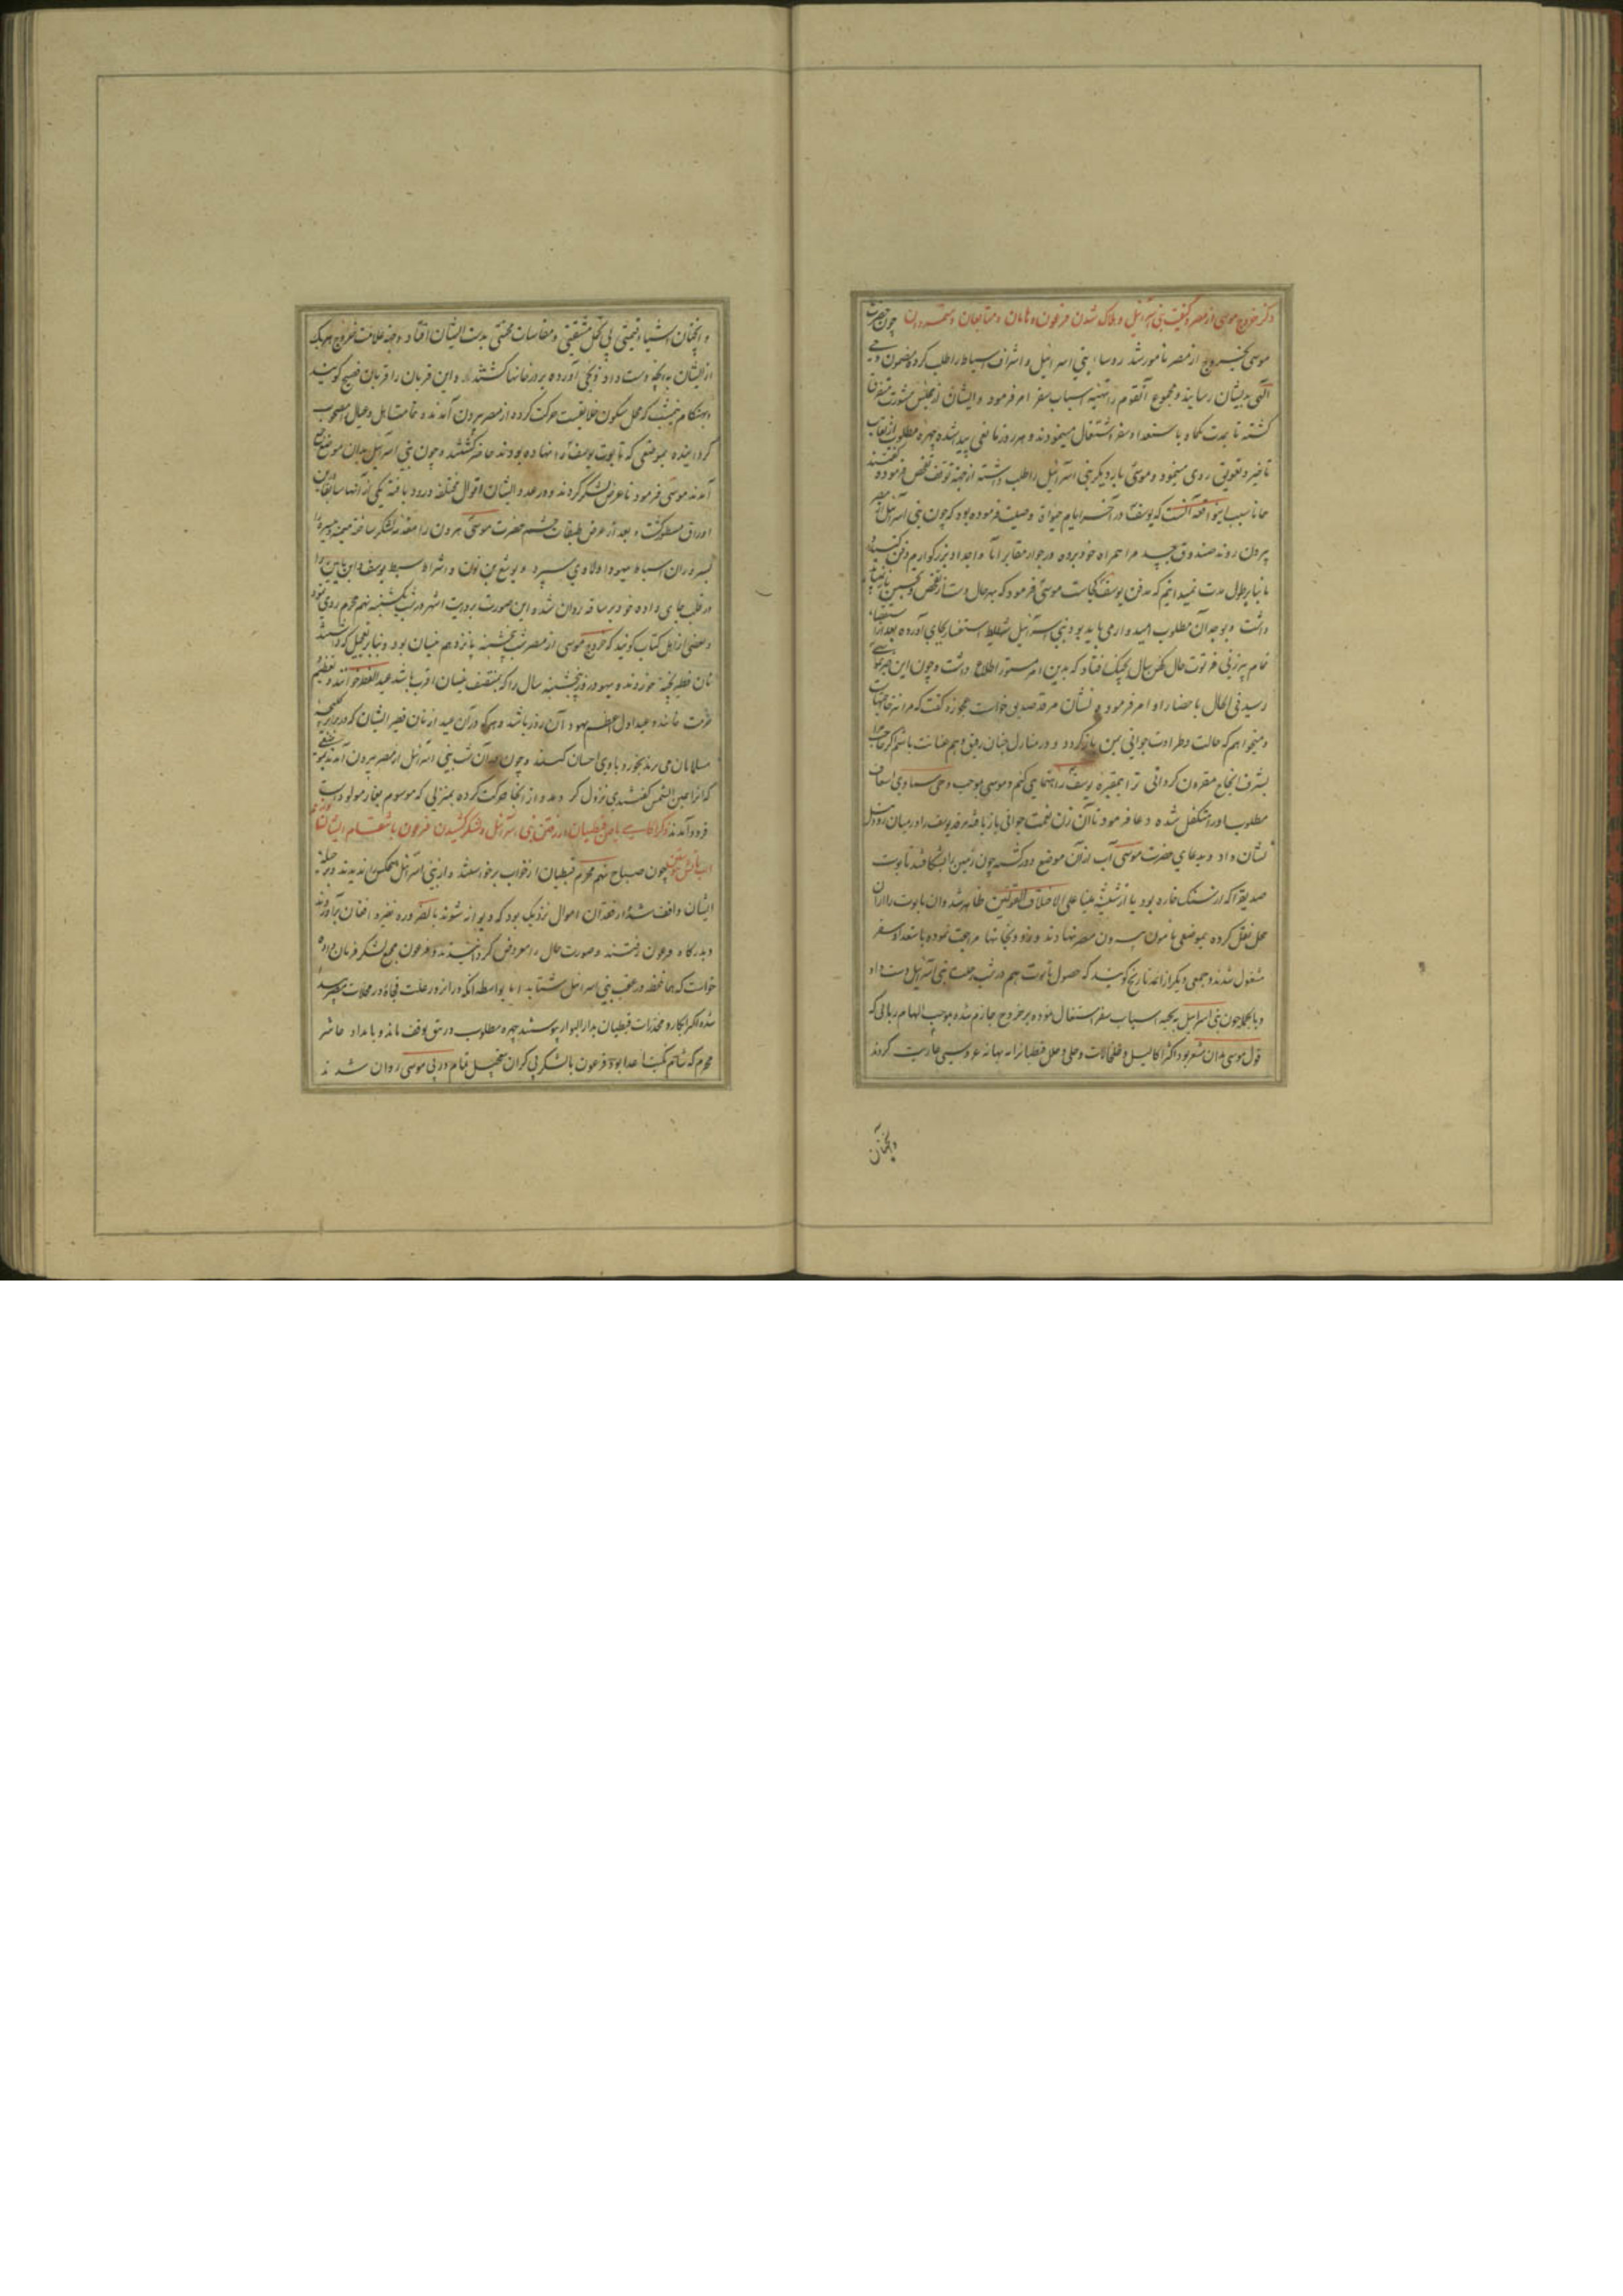 ذکر خروج موسی از مصر و کیفیت بنی اسرائیل و هلاک شدن فرعون و هامان و متابعان و متمردان چون حضرت
موسی بخروج از مصر مامور شد روسا بنی اسرائیل و اشراف اسباط را طلب کرده مضمون وحی
الهی بدیشان رسانید و مجموع آنقوم را بتهیه اسباب سفر امر فرمود و ایشان از مجلس مشورت متفرق
کشته تا مدت یکماه باستعداد سفر اشتغال مینمودند و هر روز مانعی پیدا شده چهره مطلوب از نقاب
تاخیر و تعویق روی مینمود و موسی بار دیکر بنی اسرائیل را طلب داشته از جهة توقف تفحص فرموده گفتند
همانا سبب این واقعه آنست که یوسف در آخر ایام حیوة وصیت فرموده بود که چون بنی اسرائیل از مصر
بیرون روند صندوق جسد مرا همراه خود برده در جوار مقابر آبا و اجداد بزرکوارم دفن کنند و
ما بنابر طول مدت نمیدانیم که مدفن یوسف کجاست موسی فرمود که بهر حال دست از تفحص و تجسس باز نباید
داشت و بوجدان مطلوب امیدوار می باید بود بنی اسرائیل شرایط استفسار بجای آورده بعد از استقصاء
تمام پیرزنی فرتوت حال کهن سال بچنک افتاد که بدین امر مستور اطلاع داشت و چون این خبر بموسی
رسید فی الحال باحضار او امر فرموده نشان مرقد صدیق خواست عجوزه کفت که مرا نه حاجتهاست
و میخواهم که حالت و طراوت جوانی بمن باز کردد و در منازل جنان رفیق و هم عنانت باشم اکر حاجت مرا
بشرف انجاح مقرون کردانی ترا بمقبره یوسف راهنمایی کنم و موسی بموجب وحی سماوی اسعاف
مطلوب او را متکفل شده دعا فرمود تا آن زن نعمت جوانی باز یافته مرقد یوسف را در میان رود نیل
نشان داد و بدعای حضرت موسی آب از آن موضع دور کشته چون زمین را بشکافتند تابوت
صدیق را که از سنک خاره بود یا از شیشه مینا علی الاختلاف القولین ظاهر شد و آن تابوت را از آن
محل نقل کرده بموضعی مامون بیرون مصر نهادند و بخانها مراجعت نموده باستعداد سفر
مشغول شدند و جمعی دیکر از ائمه تاریخ کویند که حصول تابوت هم در شب رحلت بنی اسرائیل دست داد
و بالجمله چون بنی اسرائیل بتهیه اسباب سفر اشتغال نموده بر خروج جازم شده بموجب الهام ربانی که
قول موسی بدان مشعر بود اکثر اکالیل و خلخالات و حلی و حلل قبطیان را به بهانه عروسی عاریت کردند
و آنچنان
و آنچنان اشیاء قیمتی بی تحمل مشقتی و مقاسات محنتی بدست ایشان افتاد و جهة علامت خروج هر یک
از ایشان بدانچه دست داد ذبحی آورده بر در خانها کشتند و این قربان را قربان فصح کویند
و بهنکام نیمشب که محل سکون خلایقست حرکت کرده از مصر بیرون آمدند و تمامت اهل و عیال مصحوب
کردانیده بموضعی که تابوت یوسف را نهاده بودند حاضر کشتند و چون بنی اسرائیل بدان موضع جمع
آمدند موسی فرمود تا عرض لشکر کردند و در عدد ایشان اقوال مختلفه ورود یافته یکی از آنها سابقا درین
اوراق مسطور کشت و بعد از عرض طبقات حشم حضرت موسی هرون را مقدمه لشکر ساخته میمنه و میسره را
بسروران اسباط یهودا و لاوی سپرد و یوشع بن نون و اشراف سبط یوسف و ابن یامین را
در قلب جای داده خود بر ساقه روان شد و این صورت بروایت اشهر در شب یکشنبه نهم محرم روی نمود
و بعضی از اهل کتاب کویند که خروج موسی از مصر شب پنجشنبه پانزدهم نیسان بود و بنابر تعجیل که داشتند
نان فطیر پخته خوردند و یهود روز پنجشنبه سال را که بمنتصف نیسان اقرب باشد عید الفطیر خوانند و تعظیم
و حرمت نمایند و عید اول اعظم یهود آن روز باشد و هر که در آن عید از نان فطیر ایشان که در جرابر
مسلمانان می برند بخورد با وی احسان کنند و چون در آن شب بنی اسرائیل از مصر بیرون آمدند بموضعی
که آنرا عین الشمس کفتندی نزول کردند و از آنجا حرکت کرده بمنزلی که موسوم بود
فرود آمدند ذکر آکاهی یافتن قبطیان از رفتن بنی اسرائیل و لشکر کشیدن فرعون بانتقام ایشان
چون صباح نهم محرم قبطیان از خواب برخواستند و از بنی اسرائیل هیچکس را ندیدند و بر حیله
ایشان واقف شده از فقدان اموال نزدیک بود که دیوانه شوند بالضروره نفیر و افغان برآوردند
و بدرکاه فرعون رفتند و صورت حال را معروض کردانیدند و فرعون بجمع لشکر فرمان داده
خواست که همان لحظه در عقب بنی اسرائیل شتابد اما بواسطه آنکه در آنروز علت فجاة در محلات مصر پیدا
شده اکثر ابکار و مخدرات قبطیان بدار البوار پیوستند چهره مطلوب در تتق توقف ماند و بامداد عاشر
محرم که شام نکبت اعدا بود فرعون با لشکر بی کران بتعجیل تمام در پی موسی روان شدند